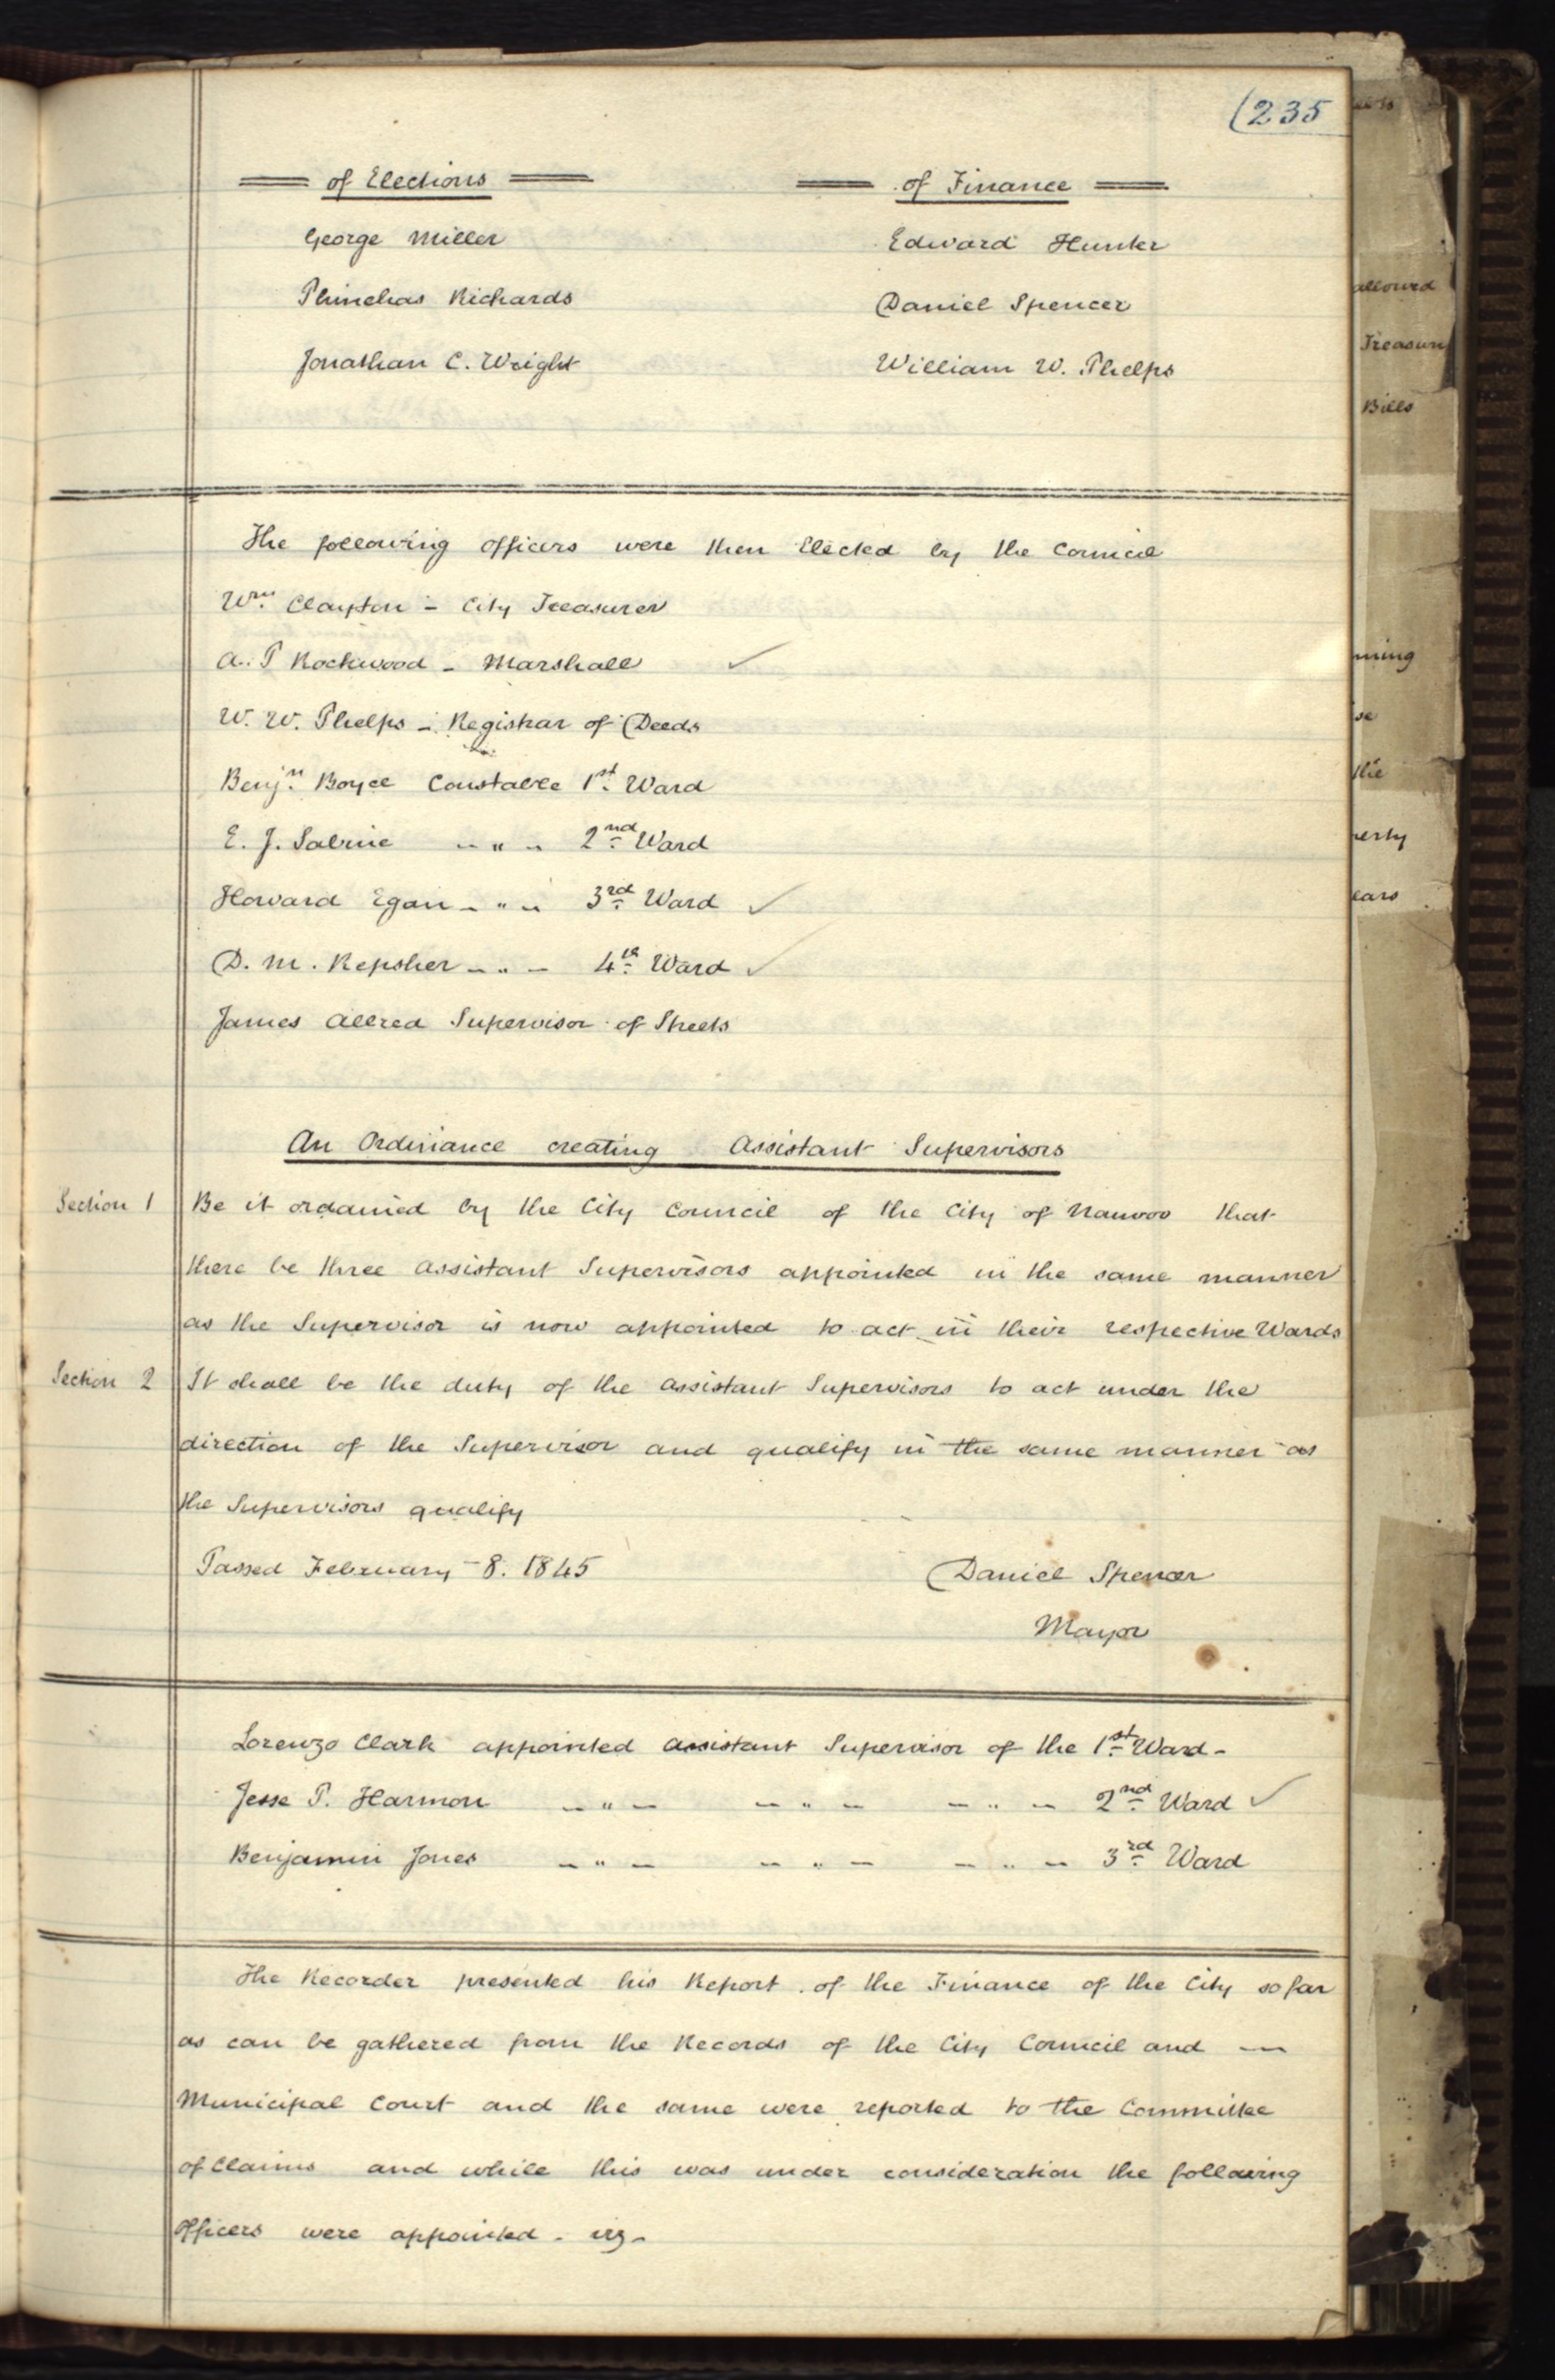 (235
of Elections
of Finance
George Miller
Edward Hunter
Phinehas Richards
Daniel Spencer
Jonathan C. Wright
William W. Phelps
The following officers were then Elected by the Council
Wm. Clayton - City Treasurer
A. P Rockwood - Marshall ✓
W. W. Phelps - Registrar of Deeds
Benjn. Boyce Constable 1st. Ward
E. J. Sabine - " - 2nd. Ward
Howard Egan - " - 3rd. Ward ✓
D. M. Repsher - " - 4th. Ward ✓
James Allred Supervisor of Streets
An Ordinance creating Assistant Supervisors
Section 1 Be it ordained by the City Council of the City of Nauvoo that
there be three Assistant Supervisors appointed in the same manner
as the Supervisor is now appointed to act in their respective Wards
Section 2 It shall be the duty of the Assistant Supervisors to act under the
direction of the Supervisor and qualify in the same manner as
the Supervisors qualify
Passed February - 8. 1845
Daniel Spencer
Mayor
Lorenzo Clark appointed Assistant Supervisor of the 1st. Ward -
Jesse P. Harmon - " - - " - - " - 2nd. Ward ✓
Benjamin Jones - " - - " - - " - 3rd. Ward
The Recorder presented his Report of the Finance of the City so far
as can be gathered from the Records of the City Council and —
Municipal Court and the same were reported to the Committee
of Claims and while this was under consideration the following
officers were appointed - viz -
allowed
Treasury
Bills